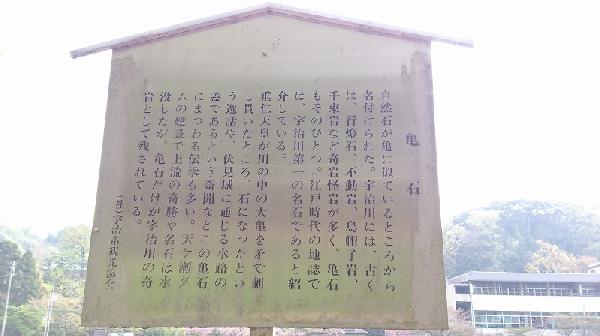 亀石
自然石が亀に似ているところから
名付けられた。宇治川には、古く
は、看燈石、不動岩、烏帽子岩、
千束岩など奇岩怪岩が多く、亀石
もそのひとつ。江戸時代の地誌で
は、宇治川第一の名石であると紹
介している。
垂仁天皇が川の中の大亀を矛で刺
し貫いたところ、石になったとい
う逸話や、伏見城に通じる水路の
蓋であるという奇聞などこの亀石
にまつわる伝承も多い。天ケ瀬ダ
ムの建設で上流の奇勝や名石は水
没したが、亀石だけが宇治川の奇
岩として残されている。
(社)宇治市観光協会